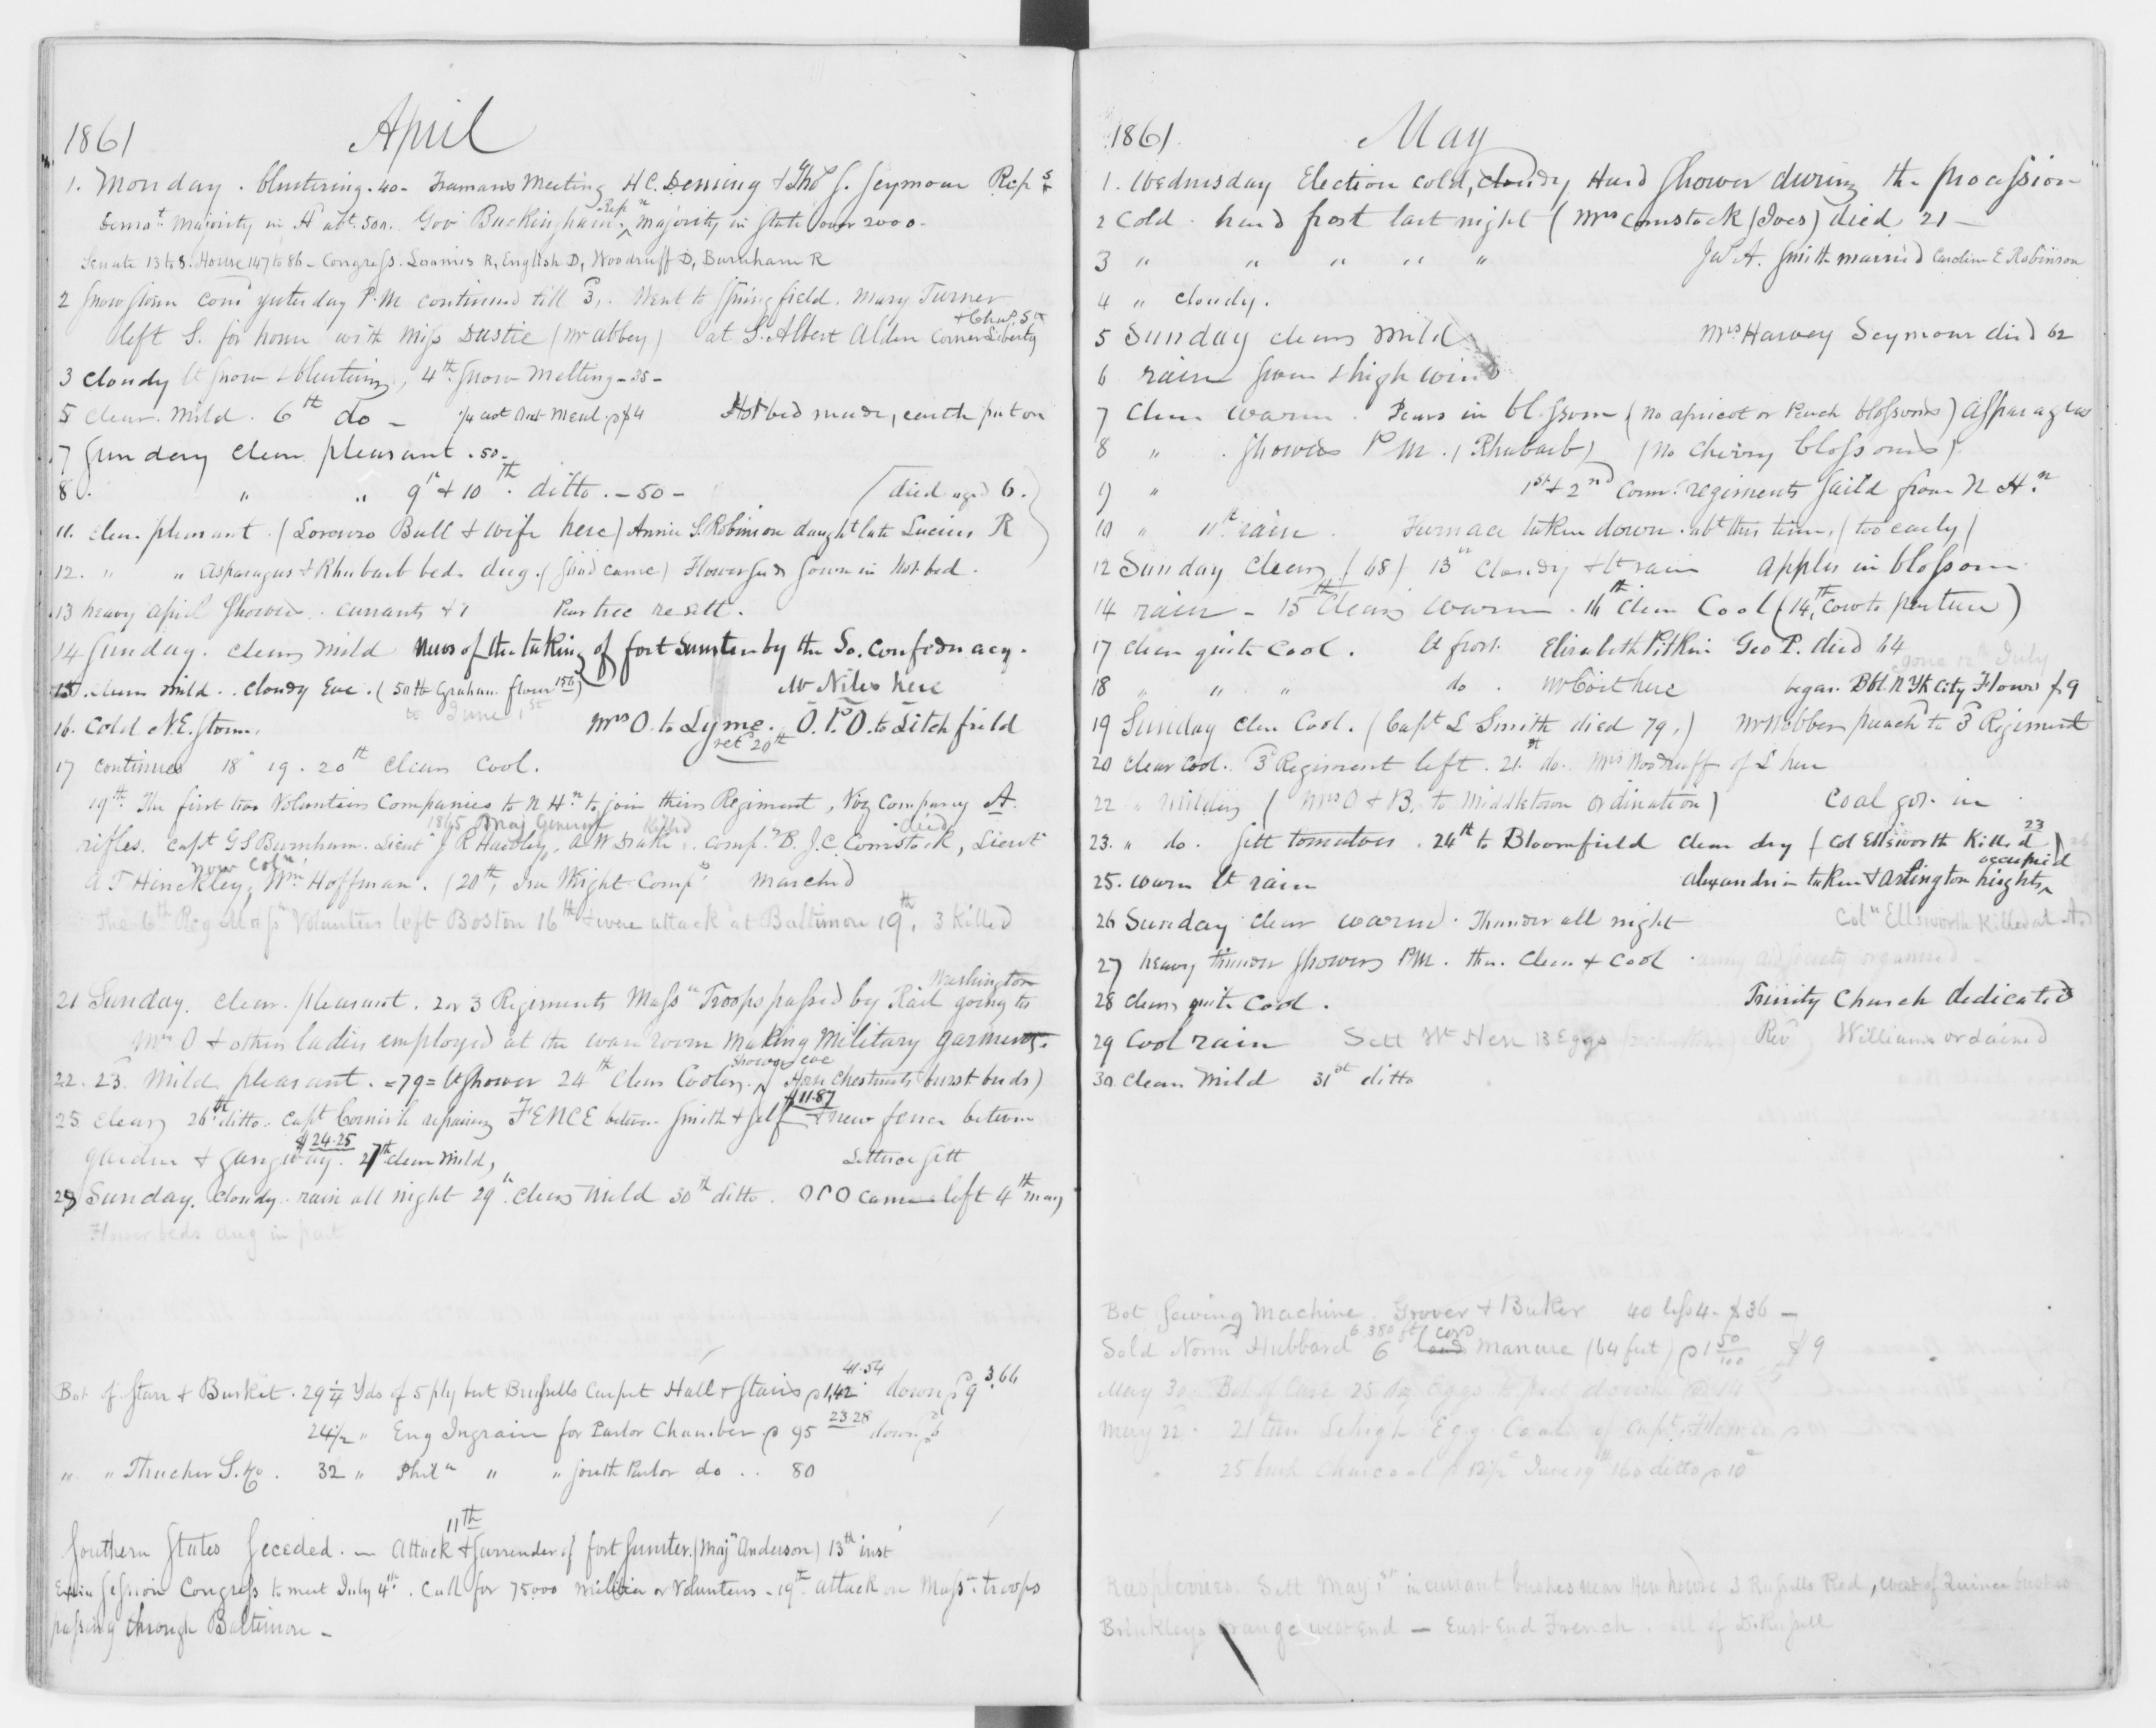 1861 April
1. Monday. blustering. 40 - Freemans Meeting H C. Deming & Thos H. Seymour Reps
Demot. Majority in H abt. 500. Gov Buckingham. Repn majority in State over 2000-
Senate 13 to 8. House 147 to 86 - Congress. Loomis R, English D, Woodruff D, Burnham R
2 Snow storm comd yesterday P.M continued till 3,. Went to Springfield. Mary Turner
left S. for home with Miss Dustie (Mr Abbey) at S. Albert Alden corner Liberty & Chesn St
3 cloudy lt snow & blustering, 4th. Snow melting - 35 -
5 clear. mild. 6th do - Hot bed made, earth put on
7 Sunday clear pleasant. 50 -
8. " " 9th & 10th. ditto. - 50 - (died aged 6.
11. clear pleasant. (Lorenzo Bull & wife here) Annie S. Robinson daught late Lucius R
12. " " Asparagus & Rhubarb beds dug. ( came) Flower seeds sown in hot bed.
13 heavy April Shower. currants & Pear tree re sett.
14 Sunday. clear mild News of the taking of fort Sumter by the So. Confedracy.
15. clear mild.. cloudy Eve. (50 lb Graham flour 150) Mr Niles here
to June 1st
16. Cold N.E. Storm. Mrs O. to Lyme. O. P. O. to Litchfield
ret 20th
17 continues 18" 19. 20th clear cool.
19th. The first two Volunteer Companies to N Hn to join their Regiment, Viz Company A.
1865 Maj General Killed died
rifles. Capt G S Burnham. Lieut J R Hawley, A W Drake. Comp. B. J. C. Comstock, Lieut
now Coln
A T Hinckley, Wm. Hoffman. (20th, Ira Wright Comp marched
The 6th Reg Mass Volunteers left Boston 16th & were attack at Baltimore 19th, 3 killed
Washington
21 Sunday. clear. pleasant. 2 or 3 Regiments Mass Troops passed by Rail going to
Mrs O & other ladies employed at the ware room Making Military garments.
shower eve
22. 23. Mild pleasant. = 79 = lt shower 24th clear Cooler. Horse Chestnuts burst buds)
$11.87
25 clear, 26th ditto. Capt Cornish repairing FENCE between Smith & Self & new fence between
$24.25
garden & gangway. 27th clear mild, Lettuce Sett
28 Sunday. Cloudy. rain all night 29th. clear Mild 30th ditto. O P O came left 4th May
Flower beds dug in part
41.54
Bot of Starr & Burkit. 29 1/4 Yds of 5 ply but Brussells Carpet Hall & Stairs p 1,42 down p 9 3.66
24 1/2 " Eng Ingrain for Parlor Chamber p 95 23 28 down
" " Thacher S. & Co. 32 " Phila " " South Parlor do.. 80
11th
Southern States Seceded. - Attack & Surrender of fort Sumter. (Maj Anderson) 13th inst
Extra Session Congress to meet July 4th. Call for 75000 Militia or Volunteers - 19th attack on Mass. troops
passing through Baltimore -
1861. May
1. Wednesday Election cold, cloudy Hard Shower during the procession
2 Cold. hard frost last night (Mrs Comstock (Ives) died 21 -
3 " " " " " Jas A. Smith married Caroline E Robinson
4 " cloudy.
5 Sunday clear mild Mrs Harvey Seymour died 62
6 rain snow & high wind
7 Clear warm. Pears in blossom (no apricot or Peach blossoms) Asparagus
8 ". Showers P M. (Rhubarb) (no cherry blossoms)
9 " 1st & 2nd Conn. regiments Saild from N Hn
10 " 11th rain. Furnace taken down. abt this time, (too early)
12 Sunday clear, (68) 13th Cloudy & lt rain apples in blossom
14 rain - 15th clear warm. 16th Clear Cool (14th, Cow to pasture)
17 clear quite cool. lt frost. Elizabeth Pitkin Geo P. died 44
gone 12th July
18 " " " do. Mr Coit here began Bbl N Yk City Flour $9
19 Sunday clear Cool. (Capt L Smith died 79,) Mr Webber preachd to 3d Regiment
20 clear cool.. 3d Regiment left. 21st do. Mrs Woodruff of L here
22 " milder (Mrs O & B. to Middletown ordination) Coal got in.
23. " do. Sett tomatoes. 24th to Bloomfield clear dry (Col Ellsworth Killed 23)
occupied
25. warm lt rain Alexandria taken & Arlington heights
26 Sunday clear warm. Thunder all night Coln Ellsworth Killed at A
27 heavy thunder Showers P.M. then Clear & Cool. army aid society organised -
28 clear quite cool. Trinity Church dedicated
29 Cool rain Sett Wt Hen 13 Eggs Rev Williams ordained
30 clear mild 31st ditto
Bot Sewing Machine. Grover & Baker 40 less 4 - $36 -
Sold Norm Hubbard 6 cord manure (64 feet) p 1 50/100 $9
May 30 Bot of Case 25 doz Eggs to put down
May 22. 21 tun Lehigh Egg Coal of Capt. Flower
" 25 bush Charcoal p 12 1/2 June 19th 160 ditto p 10
Raspberries. Sett May 1st in currant bushes near Hen house 3 Russells Red, west of Quince bushes
Brinkleys orange, west End - East End French. all of D. Russell